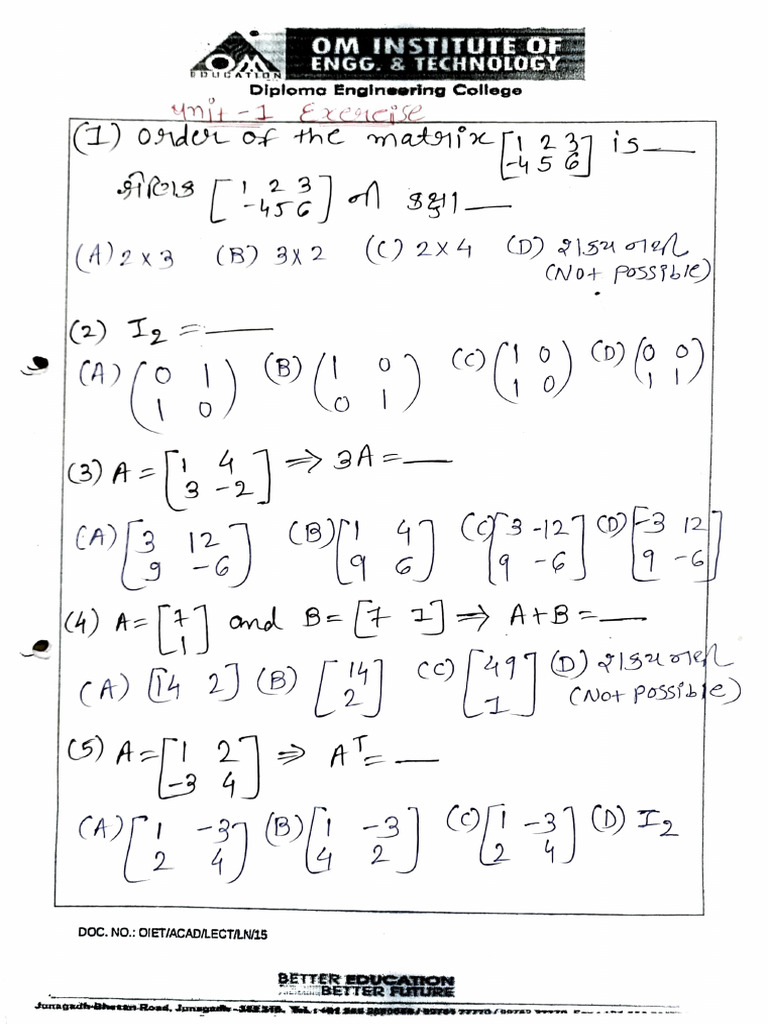 OM
EDUCATION
OM INSTITUTE OF
ENGG. & TECHNOLOGY
Diploma Engineering College
Unit-1 Exercise
(1) Order of the matrix [1 2 3 / -4 5 6] is ___
શ્રેણિક [1 2 3 / -4 5 6] ની કક્ષા ___
(A) 2×3 (B) 3×2 (C) 2×4 (D) શક્ય નથી
(Not possible)
(2) I₂ = ___
(A) (0 1 / 1 0) (B) (1 0 / 0 1) (C) (1 0 / 1 0) (D) (0 0 / 1 1)
(3) A = [1 4 / 3 -2] ⇒ 3A = ___
(A) [3 12 / 9 -6] (B) [1 4 / 9 6] (C) [3 -12 / 9 -6] (D) [-3 12 / 9 -6]
(4) A = [7 / 1] and B = [7 1] ⇒ A+B = ___
(A) [14 2] (B) [14 / 2] (C) [49 / 1] (D) શક્ય નથી
(Not possible)
(5) A = [1 2 / -3 4] ⇒ Aᵀ = ___
(A) [1 -3 / 2 4] (B) [1 -3 / 4 2] (C) [1 -3 / 2 4] (D) I₂
DOC. NO.: OIET/ACAD/LECT/LN/15
BETTER EDUCATION
BETTER FUTURE
Junagadh-Bhesan Road, Junagadh